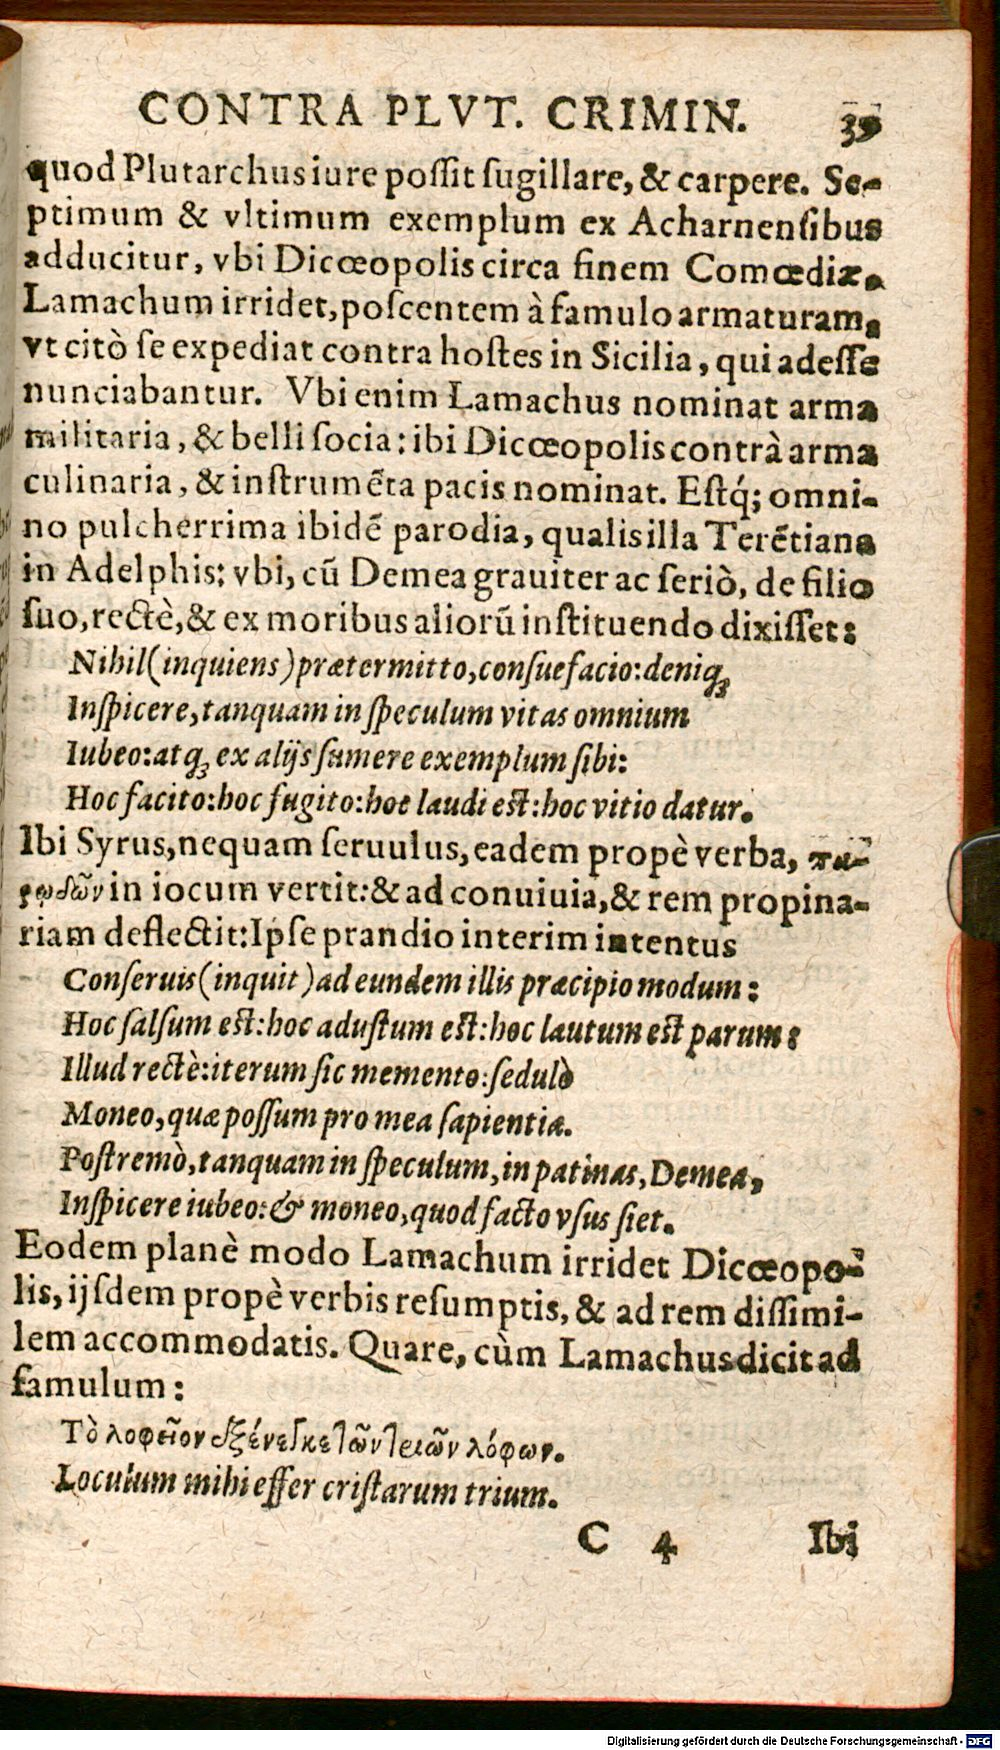 CONTRA PLVT. CRIMIN. 39
quod Plutarchus iure poſſit ſugillare, & carpere. Se-
ptimum & vltimum exemplum ex Acharnenſibus
adducitur, vbi Dicœopolis circa finem Comœdiæ,
Lamachum irridet, poſcentem à famulo armaturam,
vt citò ſe expediat contra hoſtes in Sicilia, qui adeſſe
nunciabantur. Vbi enim Lamachus nominat arma
militaria, & belli ſocia: ibi Dicœopolis contrà arma
culinaria, & inſtrumẽta pacis nominat. Eſtq́; omni-
no pulcherrima ibidẽ parodia, qualis illa Terẽtiana
in Adelphis: vbi, cũ Demea grauiter ac ſeriò, de filio
ſuo, rectè, & ex moribus aliorũ inſtituendo dixiſſet:
Nihil (inquiens) prætermitto, conſuefacio: deniq;
Inſpicere, tanquam in ſpeculum vitas omnium
Iubeo: atq; ex alijs ſumere exemplum ſibi:
Hoc facito: hoc fugito: hoc laudi eſt: hoc vitio datur.
Ibi Syrus, nequam ſeruulus, eadem propè verba, πα-
ρῳδῶν in iocum vertit: & ad conuiuia, & rem propina-
riam deflectit: Ipſe prandio interim intentus
Conſeruis (inquit) ad eundem illis præcipio modum:
Hoc ſalſum eſt: hoc aduſtum eſt: hoc lautum eſt parum:
Illud rectè: iterum ſic memento: ſedulò
Moneo, quæ poſſum pro mea ſapientia.
Poſtremò, tanquam in ſpeculum, in patinas, Demea,
Inſpicere iubeo: & moneo, quod facto vſus ſiet.
Eodem planè modo Lamachum irridet Dicœopo-
lis, ijſdem propè verbis reſumptis, & ad rem diſſimi-
lem accommodatis. Quare, cùm Lamachus dicit ad
famulum:
Τὸ λοφεῖον ἐξένεγκε τῶν τριῶν λόφων.
Loculum mihi effer criſtarum trium.
C 4 Ibi
Digitalisierung gefördert durch die Deutsche Forschungsgemeinschaft - DFG